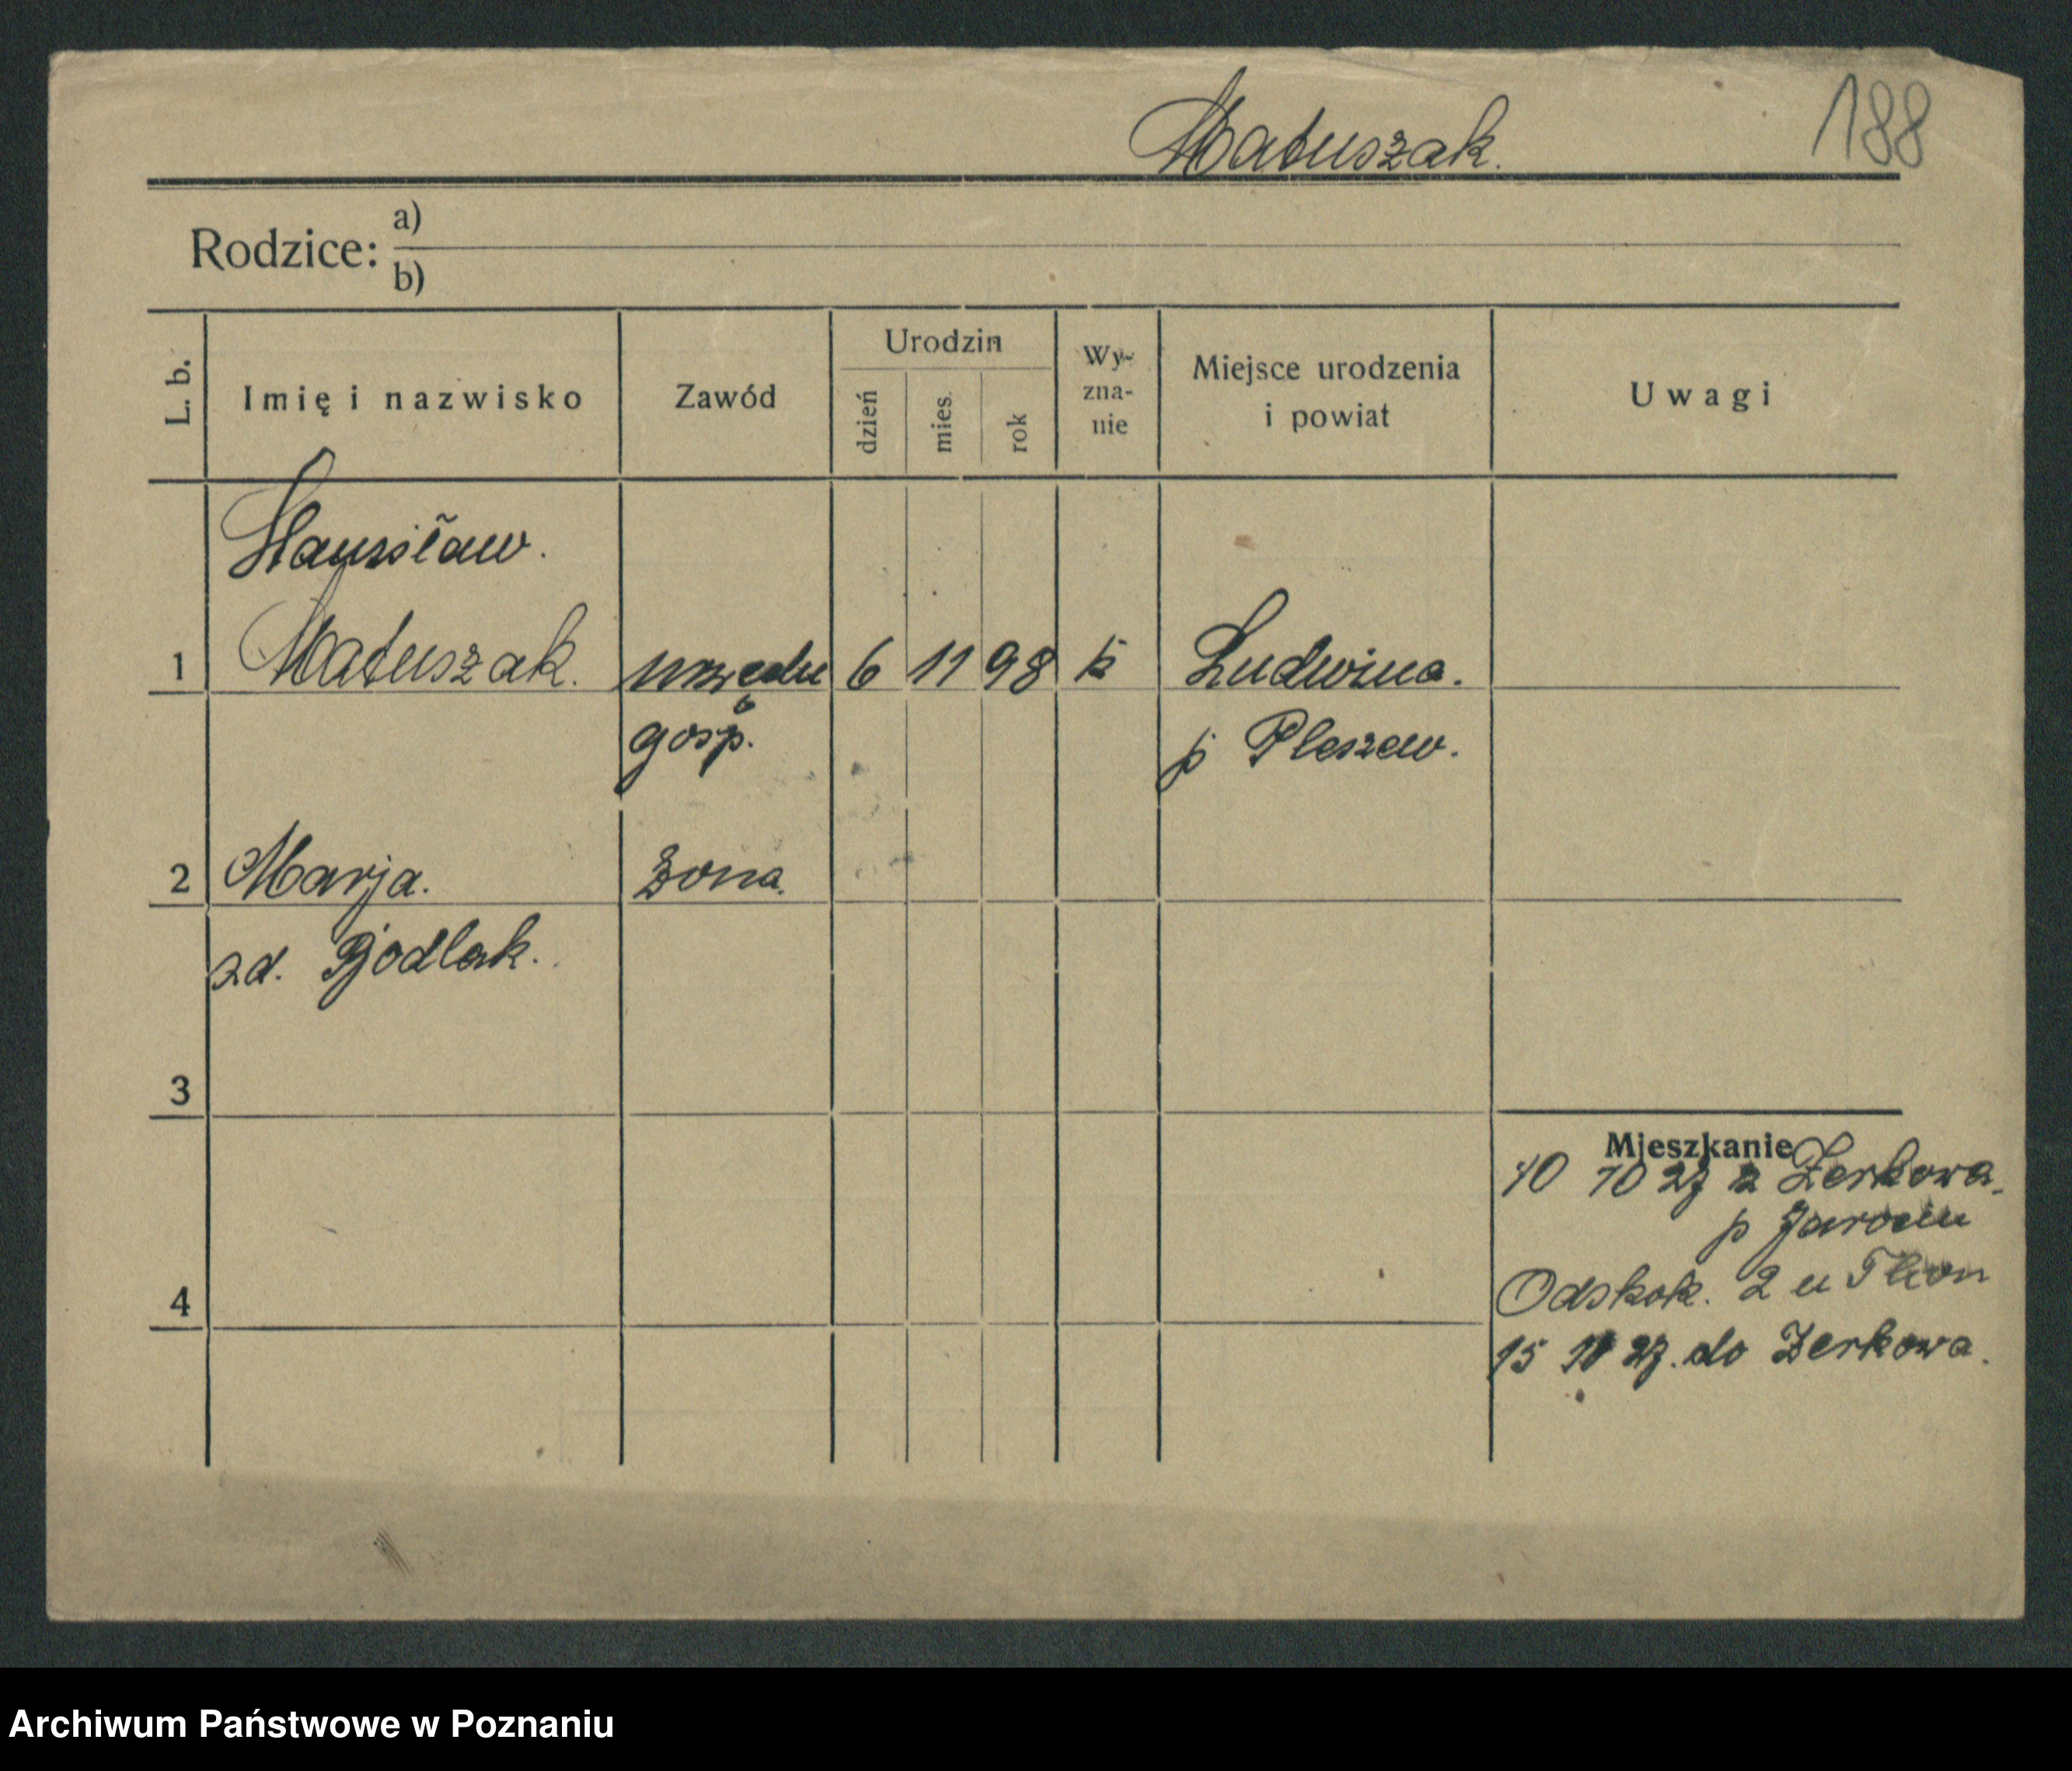 188
Matuszak.
Rodzice: a)
b)
L. b. Imię i nazwisko Zawód Urodzin dzień mies. rok Wy-zna-nie Miejsce urodzenia i powiat Uwagi
Stanisław.
1 Matuszak. urzędn 6 11 98 k Ludwina.
gosp. p Pleszew.
2 Marja. żona.
zd.
3
Mieszkanie
10 10 27 z Zerkowa.
p Jarocin
4 Odskok. 2 u
15 27. do Zerkowa.
Archiwum Państwowe w Poznaniu